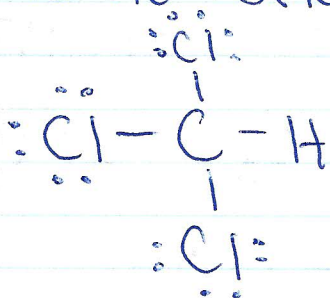 :Cl:
:Cl — C — H
:Cl: